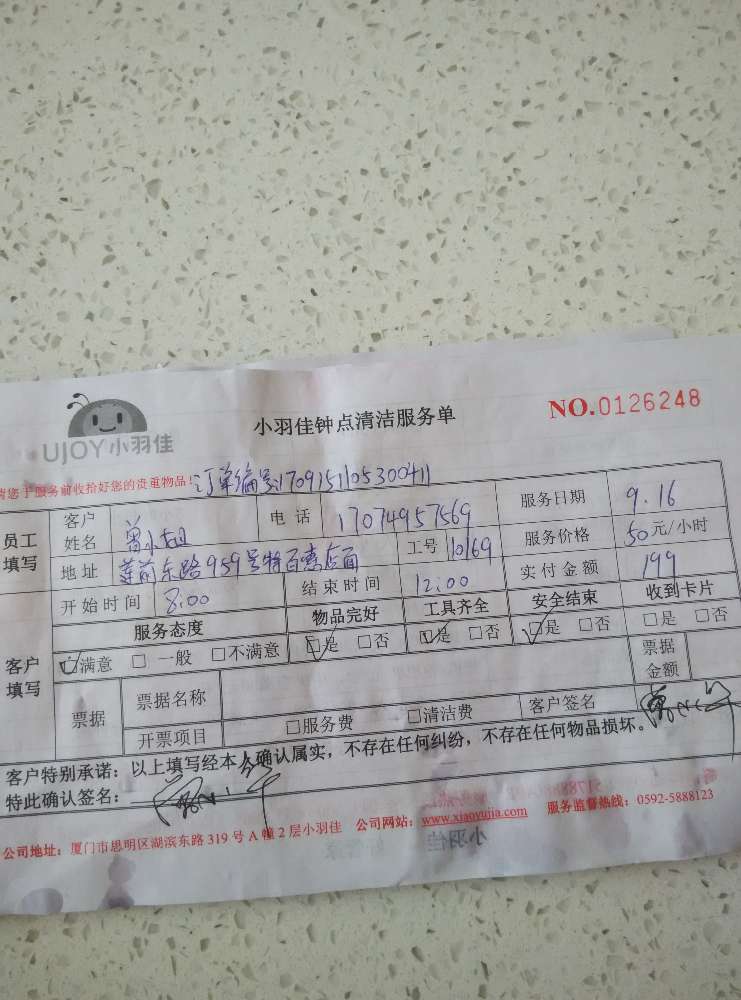 UJOY小羽佳
小羽佳钟点清洁服务单
NO.0126248
请您于服务前收拾好您的贵重物品!订单编号170915110530041
员工填写 客户姓名 曾小姐 电话 17074957569 服务日期 9.16
地址 莲前东路959号特百惠店面 工号 10169 服务价格 50元/小时
开始时间 8:00 结束时间 12:00 实付金额 199
客户填写 服务态度 物品完好 工具齐全 安全结束 收到卡片
☑满意 □一般 □不满意 ☑是 □否 ☑是 □否 ☑是 □否 □是 □否
票据 票据名称 票据金额
开票项目 □服务费 □清洁费 客户签名
客户特别承诺：以上填写经本人确认属实，不存在任何纠纷，不存在任何物品损坏。
特此确认签名：
公司地址：厦门市思明区湖滨东路319号A幢2层小羽佳 公司网站：www.xiaoyujia.com 服务监督热线：0592-5888123